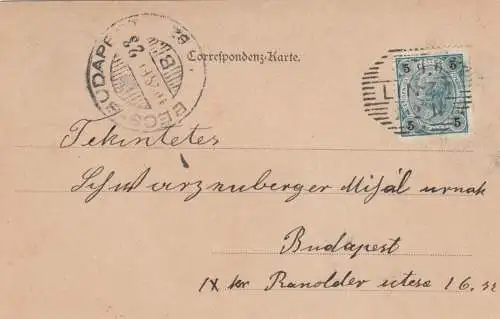 BÉCS-BUDAPEST
23
B
Correspondenz-Karte.
5 5
5 5
Tekintetes
Schwarzenberger Mihál urnak
Budapest
IX ker Ranolder utcza 16. sz